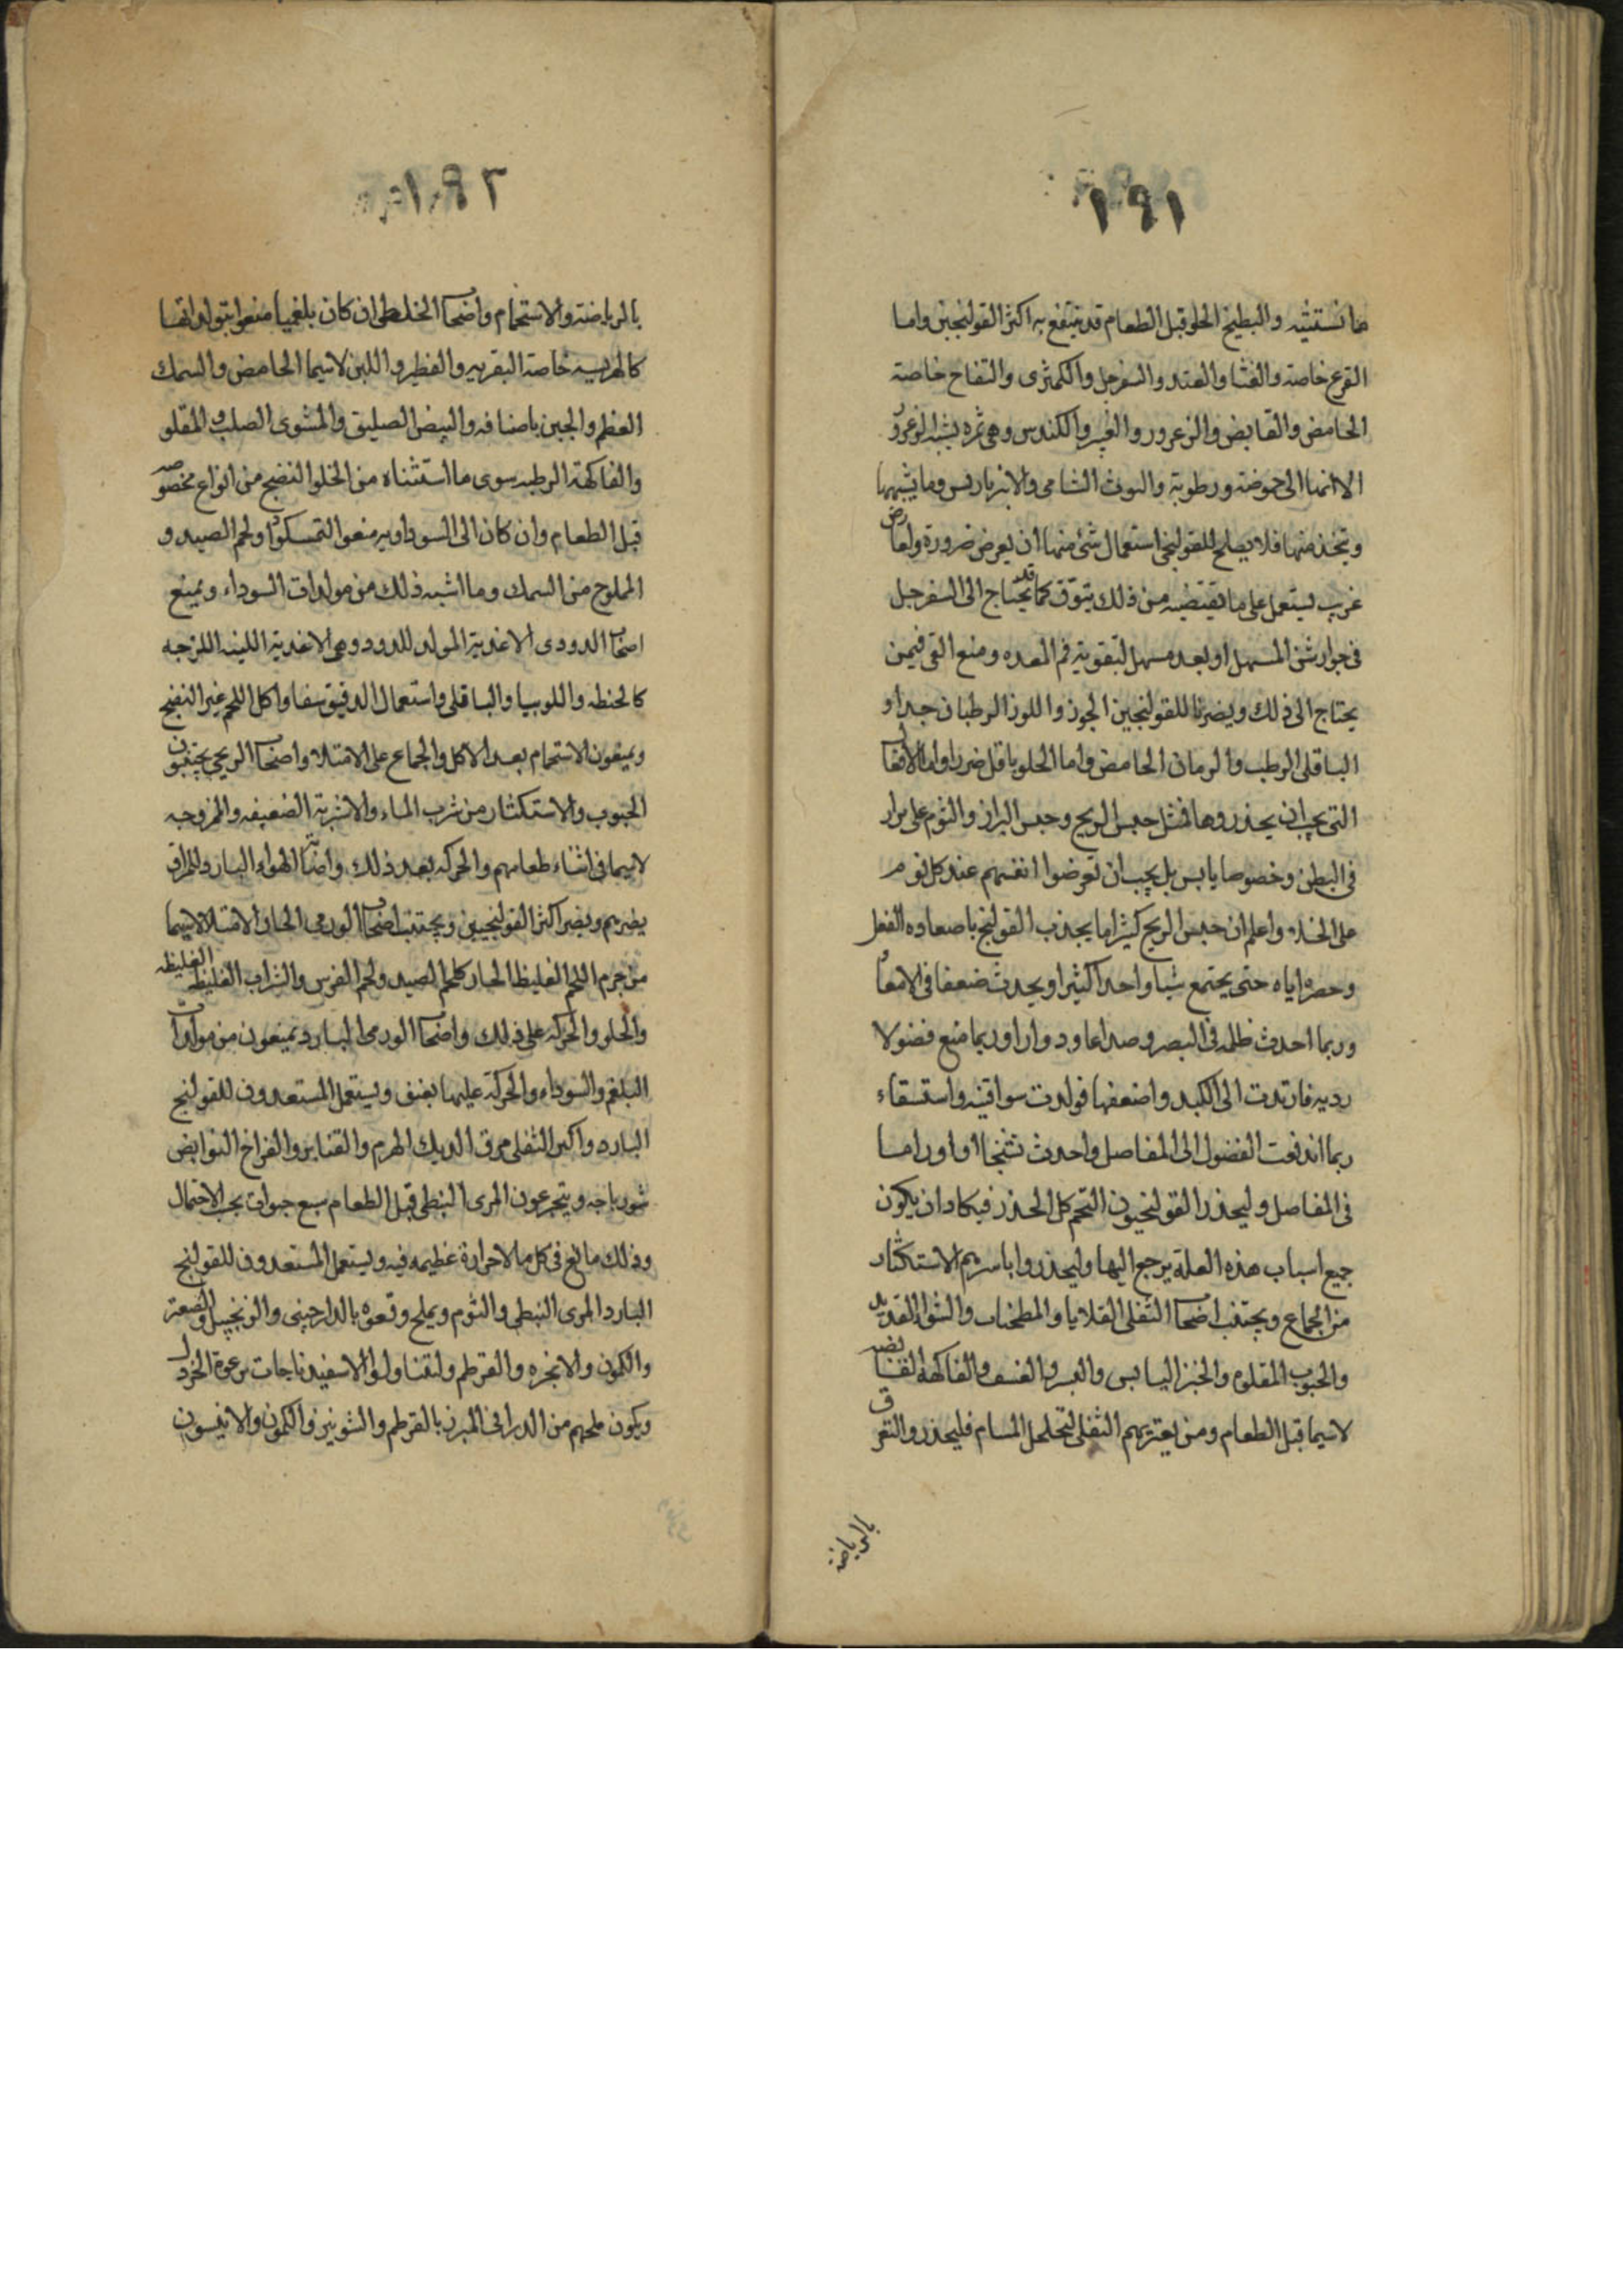 ١٩١
ما نستثنيه والبطيخ الحلو قبل الطعام قد ينتفع به اكثر القولنجين واما
القرع خاصة والقثا والقتد والسفرجل والكمثرى والتفاح خاصة
الحامض والقابض والزعرور والغبيرا والكندس وهى ثمرة يشبه الزعرور
الا انها الى حموضة ورطوبة والتوث الشامى والانبرباريس وما يشبهها
ويتخذ منها فلا يصلح للقولنجى استعمال شئ منها ان يعرض ضرورة وعارض
غريب يستعمل على ما يقتضيه من ذلك بتوق كما قد يحتاج الى السفرجل
فى جوارشن المسهل او بعد مسهل لتقوية فم المعده ومنع القى فيمن
يحتاج الى ذلك ويضر للقولنجين الجوز واللوز الرطبان جدا و
الباقلى الرطب والرمان الحامض واما الحلو باقل ضررا واما الافعال
التى يجب ان يحذروها فمثل حبس الريح وحبس البراز والنوم على براز
فى البطن وخصوصا يابس بل يجب ان تعرضوا انفسهم عند كل نوم
على الخلاء واعلم ان حبس الريح كثيرا ما يجذب القولنج باصعاده الثفل
وحصره اياه حتى يجتمع شيا واحدا كثيرا ويحدث ضعفا فى الامعا
وربما احدث ظلمة فى البصر وصداعا ودوارا وربما منع فضولا
رديه فارتدت الى الكبد واضعفها فولدت سوا قنية واستسقاء
ربما اندفعت الفضول الى المفاصل واحدث تشنجا او اوراما
فى المفاصل وليحذر القولنجيون التخم كل الحذر فيكاد ان يكون
جميع اسباب هذه العلة يرجع اليها وليحذروا باسرهم الاستكثار
من الجماع ويجتنب اصحاب الثفلى القلايا والمطجنات والشوا القديد
والحبوب المقلوه والخبز اليابس والبسر والقسب والفاكهة القابضه
لاسيما قبل الطعام ومن يعتريهم الثفلى لتخلخل المسام فليحذروا التعرق
بالرياضة
١٩٢
بالرياضة والاستحمام واصحاب الخلطى ان كان بلغميا منعوا بتولداتها
كالهريسه خاصة البقريه والفطير واللبن لاسيما الحامض والسمك
العظم والجبن باصنافه والبيض الصليق والمشوى الصلب والمقلو
والفاكهة الرطبه سوى ما استثناه من الحلو النضج من انواع مخصوصه
قبل الطعام وان كان الى السوداويه منعوا التمسكود ولحم الصيد و
المملوح من السمك وما اشبه ذلك من مولدات السوداء ويمنع
اصحاب الدودى الاغدية المولد للدود وهى الاغدية اللينه اللزجه
كالحنطه واللوبيا والباقلى واستعمال الدقيق سفا واكل اللحم غير النضج
ويمنعون الاستحمام بعد الاكل والجماع على الامتلا واصحاب الريحى يجتنبون
الحبوب والاستكثار من شرب الماء والاشربة الضعيفه والممزوجه
لاسيما فى اثناء طعامهم والحركه بعد ذلك وايضا الهواء البارد والمراق
يضرهم ويضر اكثر القولنجيين ويجتنب اصحاب الورمى الحار الامتلا لاسيما
من جرم اللحم الغليظ الحار كلحم الصيد ولحم الفرس والشراب الغليظ الغليظه
والحلو والحركه على ذلك واصحاب الورمى البارد يمنعون من مولدات
البلغم والسوداء والحركة عليها بعنف ويستعمل المستعدون للقولنج
البارد واكبر الثفلى مرق الديك الهرم والقنابر والفراخ النوابض
شورباجه ويتجرعون المرى النبطى قبل الطعام سبع جرات بحسب الاحتمال
وذلك مانع فى كل ما لا حرارة عظيمه فيه ويستعمل المستعدون للقولنج
البارد المرى النبطى والثوم ويملح وقعوه بالدارجينى والزنجبيل والصعتر
والكمون والانجره والقرطم وليتناولوا الاسفيدباجات برعوة الخردل
ويكون ملحهم من الدرانى المبزر بالقرطم والشونيز والكمون والانيسون